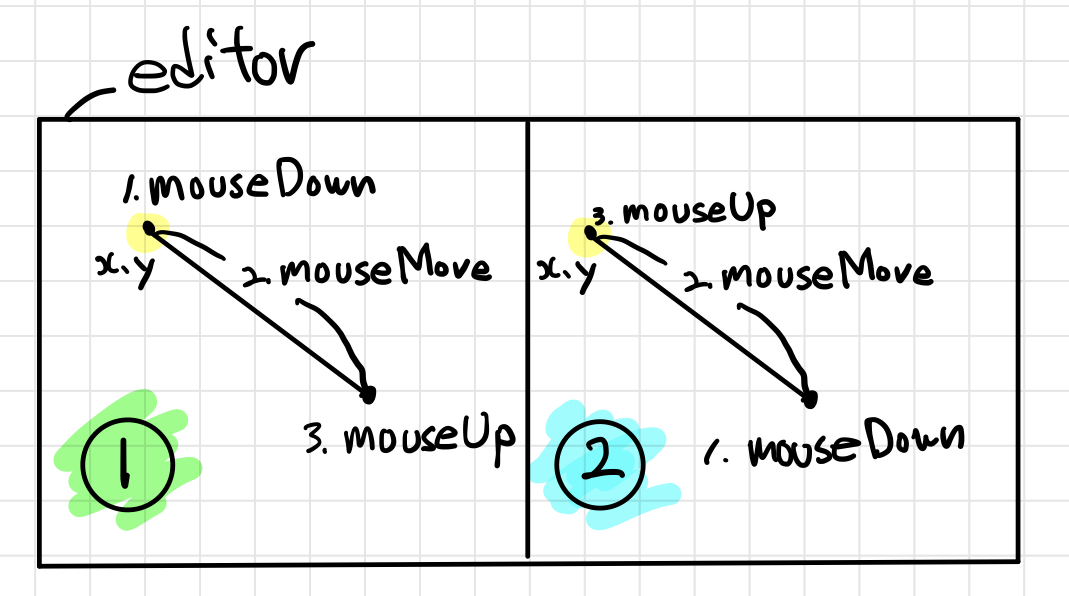 editor
1. mouseDown
x, y
2. mouseMove
3. mouseUp
1
3. mouseUp
x, y
2. mouseMove
1. mouseDown
2